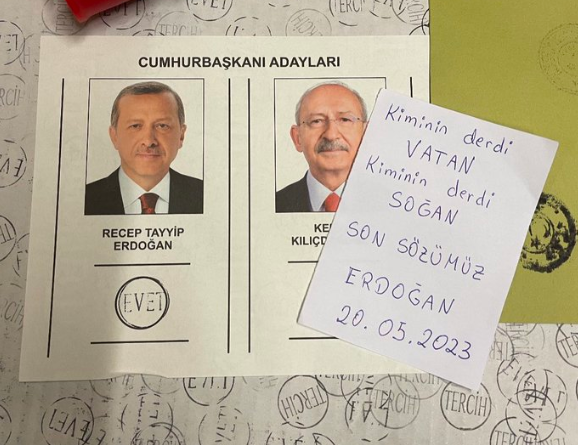 CUMHURBAŞKANI ADAYLARI
RECEP TAYYİP
ERDOĞAN
EVET
KE
KILIÇD
Kiminin derdi
VATAN
Kiminin derdi
SOĞAN
SON SÖZÜMÜZ
ERDOĞAN
20.05.2023
TERCİH
EVET
TERCİH
TERCİH
TERCİH